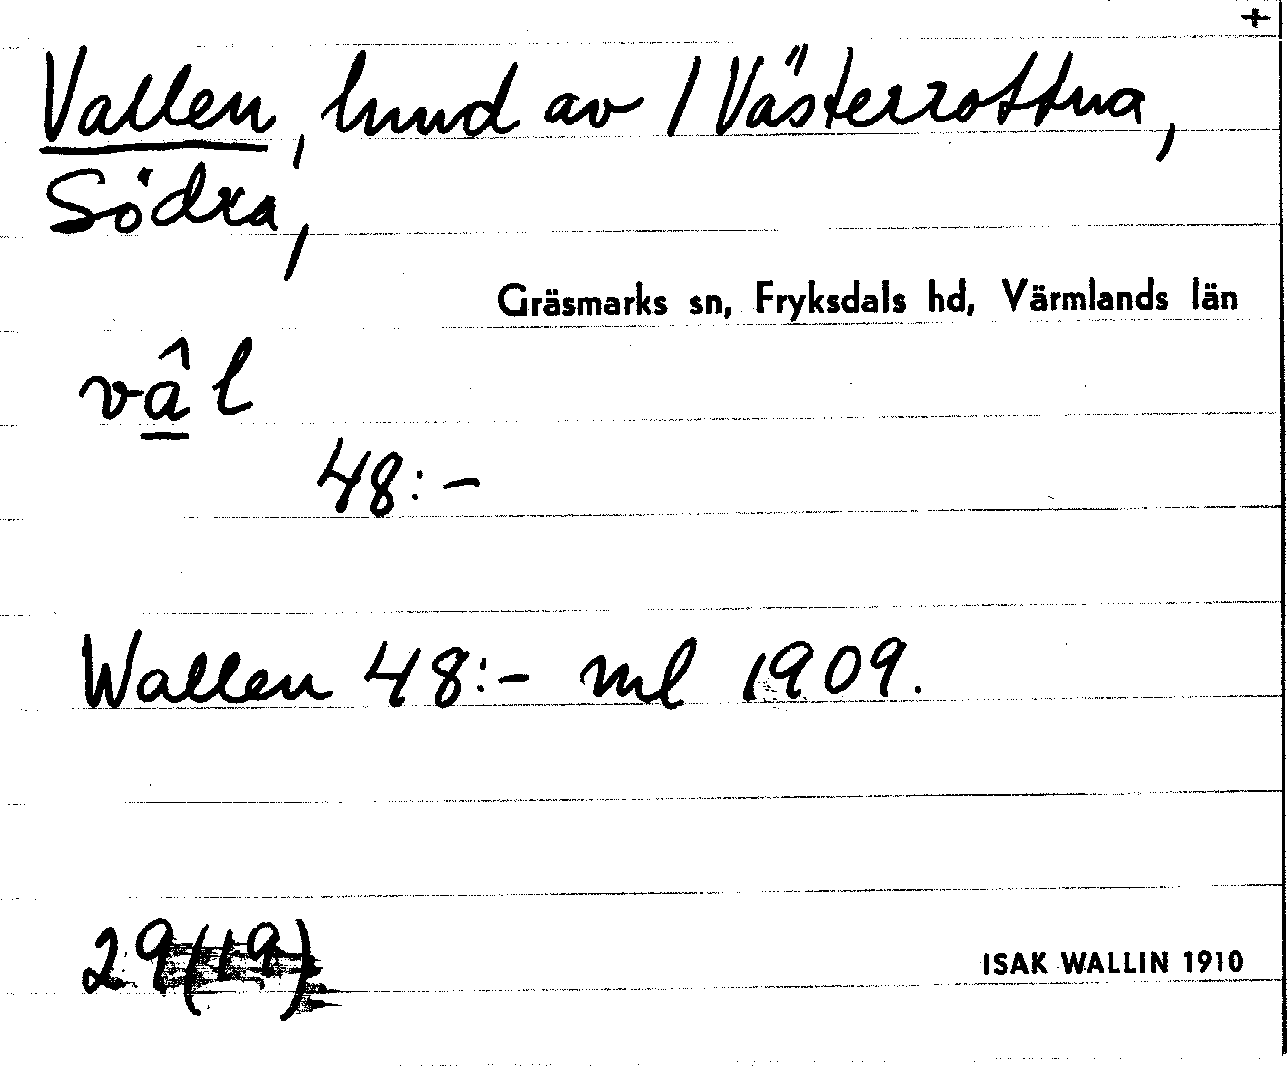 +
Vallen, hmd av 1 Västerrottna,
Södra,
Gräsmarks sn, Fryksdals hd, Värmlands län
vâl
48:-
Wallen 48:- ml 1909.
29(19)
ISAK WALLIN 1910